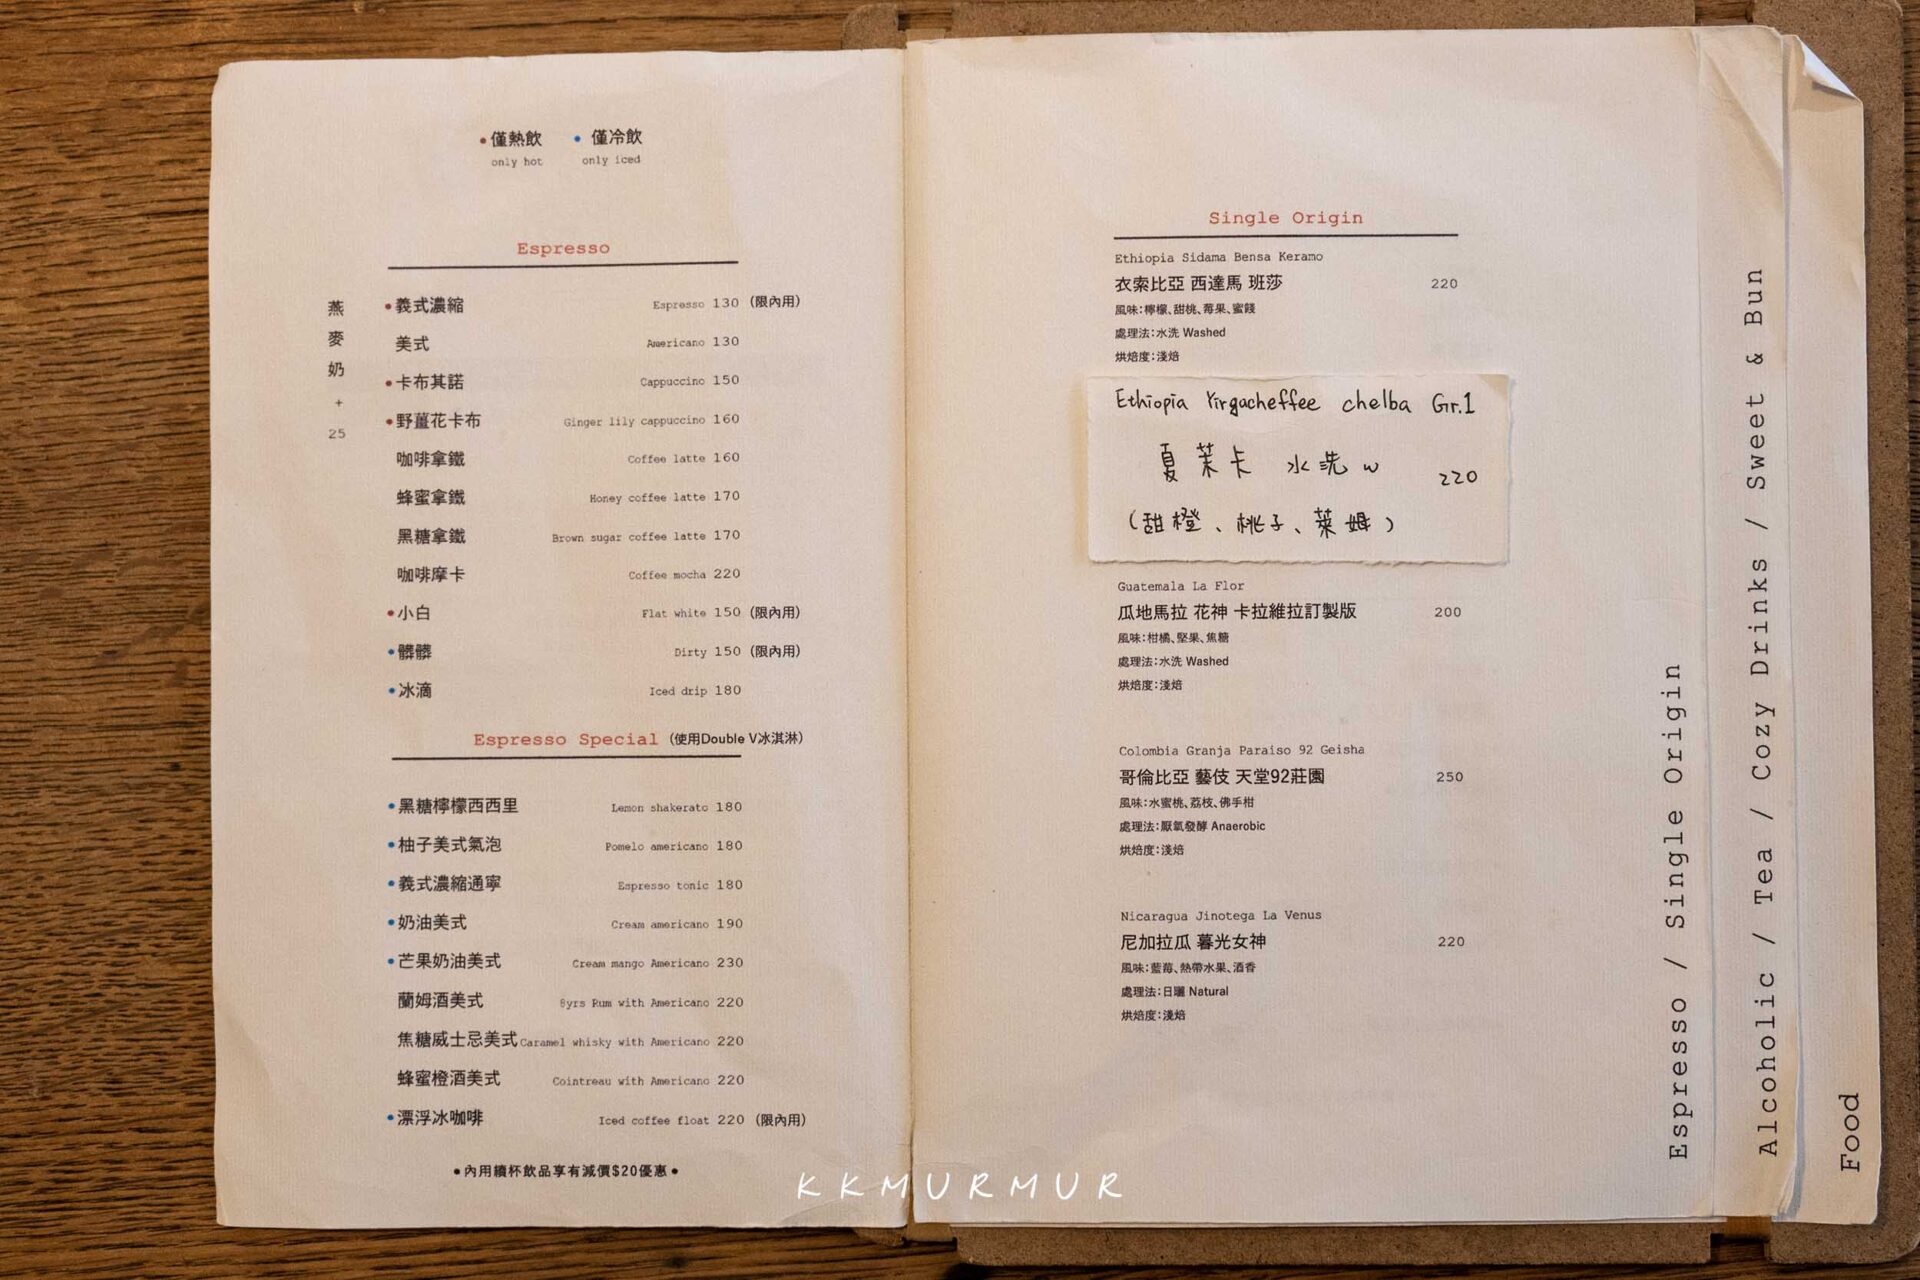 •僅熱飲 •僅冷飲
only hot only iced
Espresso
燕麥奶+25
•義式濃縮 Espresso 130 (限內用)
美式 Americano 130
•卡布其諾 Cappuccino 150
•野薑花卡布 Ginger lily cappuccino 160
咖啡拿鐵 Coffee latte 160
蜂蜜拿鐵 Honey coffee latte 170
黑糖拿鐵 Brown sugar coffee latte 170
咖啡摩卡 Coffee mocha 220
•小白 Flat white 150 (限內用)
•髒髒 Dirty 150 (限內用)
•冰滴 Iced drip 180
Espresso Special (使用Double V冰淇淋)
•黑糖檸檬西西里 Lemon shakerato 180
•柚子美式氣泡 Pomelo americano 180
•義式濃縮通寧 Espresso tonic 180
•奶油美式 Cream americano 190
•芒果奶油美式 Cream mango Americano 230
蘭姆酒美式 8yrs Rum with Americano 220
焦糖威士忌美式 Caramel whisky with Americano 220
蜂蜜橙酒美式 Cointreau with Americano 220
•漂浮冰咖啡 Iced coffee float 220 (限內用)
•內用續杯飲品享有減價$20優惠•
Single Origin
Ethiopia Sidama Bensa Keramo
衣索比亞 西達馬 班莎 220
風味:檸檬、甜桃、莓果、蜜餞
處理法:水洗 Washed
烘焙度:淺焙
Ethiopia Yirgacheffee chelba Gr.1
夏茉卡 水洗 w 220
(甜橙、桃子、萊姆)
Guatemala La Flor
瓜地馬拉 花神 卡拉維拉訂製版 200
風味:柑橘、堅果、焦糖
處理法:水洗 Washed
烘焙度:淺焙
Colombia Granja Paraiso 92 Geisha
哥倫比亞 藝伎 天堂92莊園 250
風味:水蜜桃、荔枝、佛手柑
處理法:厭氧發酵 Anaerobic
烘焙度:淺焙
Nicaragua Jinotega La Venus
尼加拉瓜 暮光女神 220
風味:藍莓、熱帶水果、酒香
處理法:日曬 Natural
烘焙度:淺焙
Espresso / Single Origin
Alcoholic / Tea / Cozy Drinks / Sweet & Bun
Food
KKMURMUR